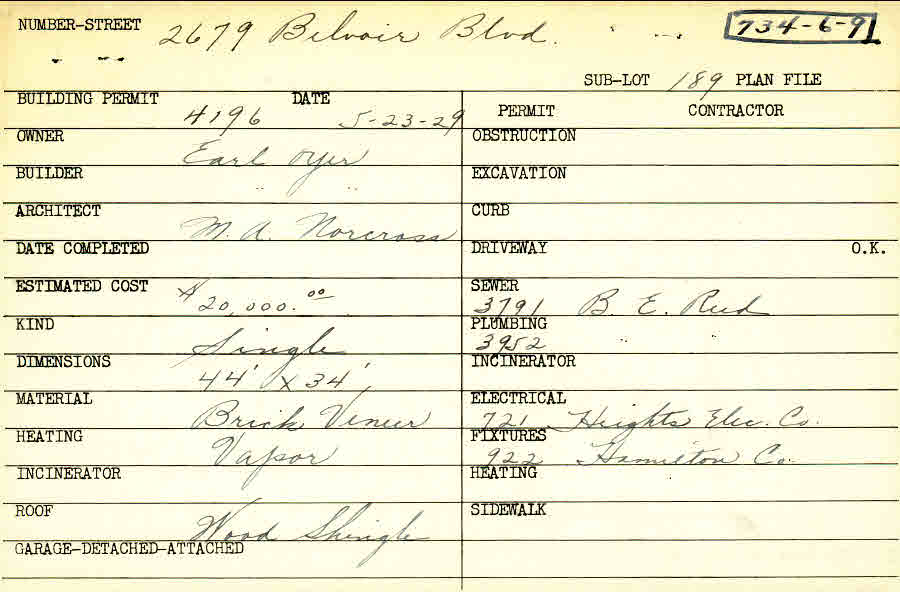 NUMBER-STREET 2679 Belvoir Blvd. 734-6-91
SUB-LOT 189 PLAN FILE
BUILDING PERMIT DATE
4196 5-23-29
PERMIT CONTRACTOR
OWNER Earl Oyer
OBSTRUCTION
BUILDER " "
EXCAVATION
ARCHITECT M. A. Norcross
CURB
DATE COMPLETED
DRIVEWAY O.K.
ESTIMATED COST $20,000.00
SEWER
3791 B. E. Reed
KIND Single
PLUMBING
3952 " "
DIMENSIONS 44' x 34'
INCINERATOR
MATERIAL Brick Veneer
ELECTRICAL
721 Heights Elec. Co.
HEATING Vapor
FIXTURES
922 Hamilton Co.
INCINERATOR
HEATING
ROOF Wood Shingle
SIDEWALK
GARAGE-DETACHED-ATTACHED